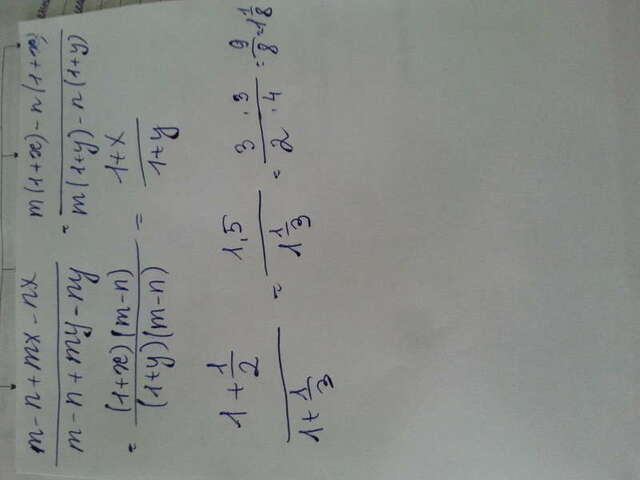 (m - n + mx - nx)/(m - n + my - ny) = (m(1+x) - n(1+x))/(m(1+y) - n(1+y))
= ((1+x)(m-n))/((1+y)(m-n)) = (1+x)/(1+y)
(1 + 1/2)/(1 + 1/3) = 1,5/(1 1/3) = (3 · 3)/(2 · 4) = 9/8 = 1 1/8